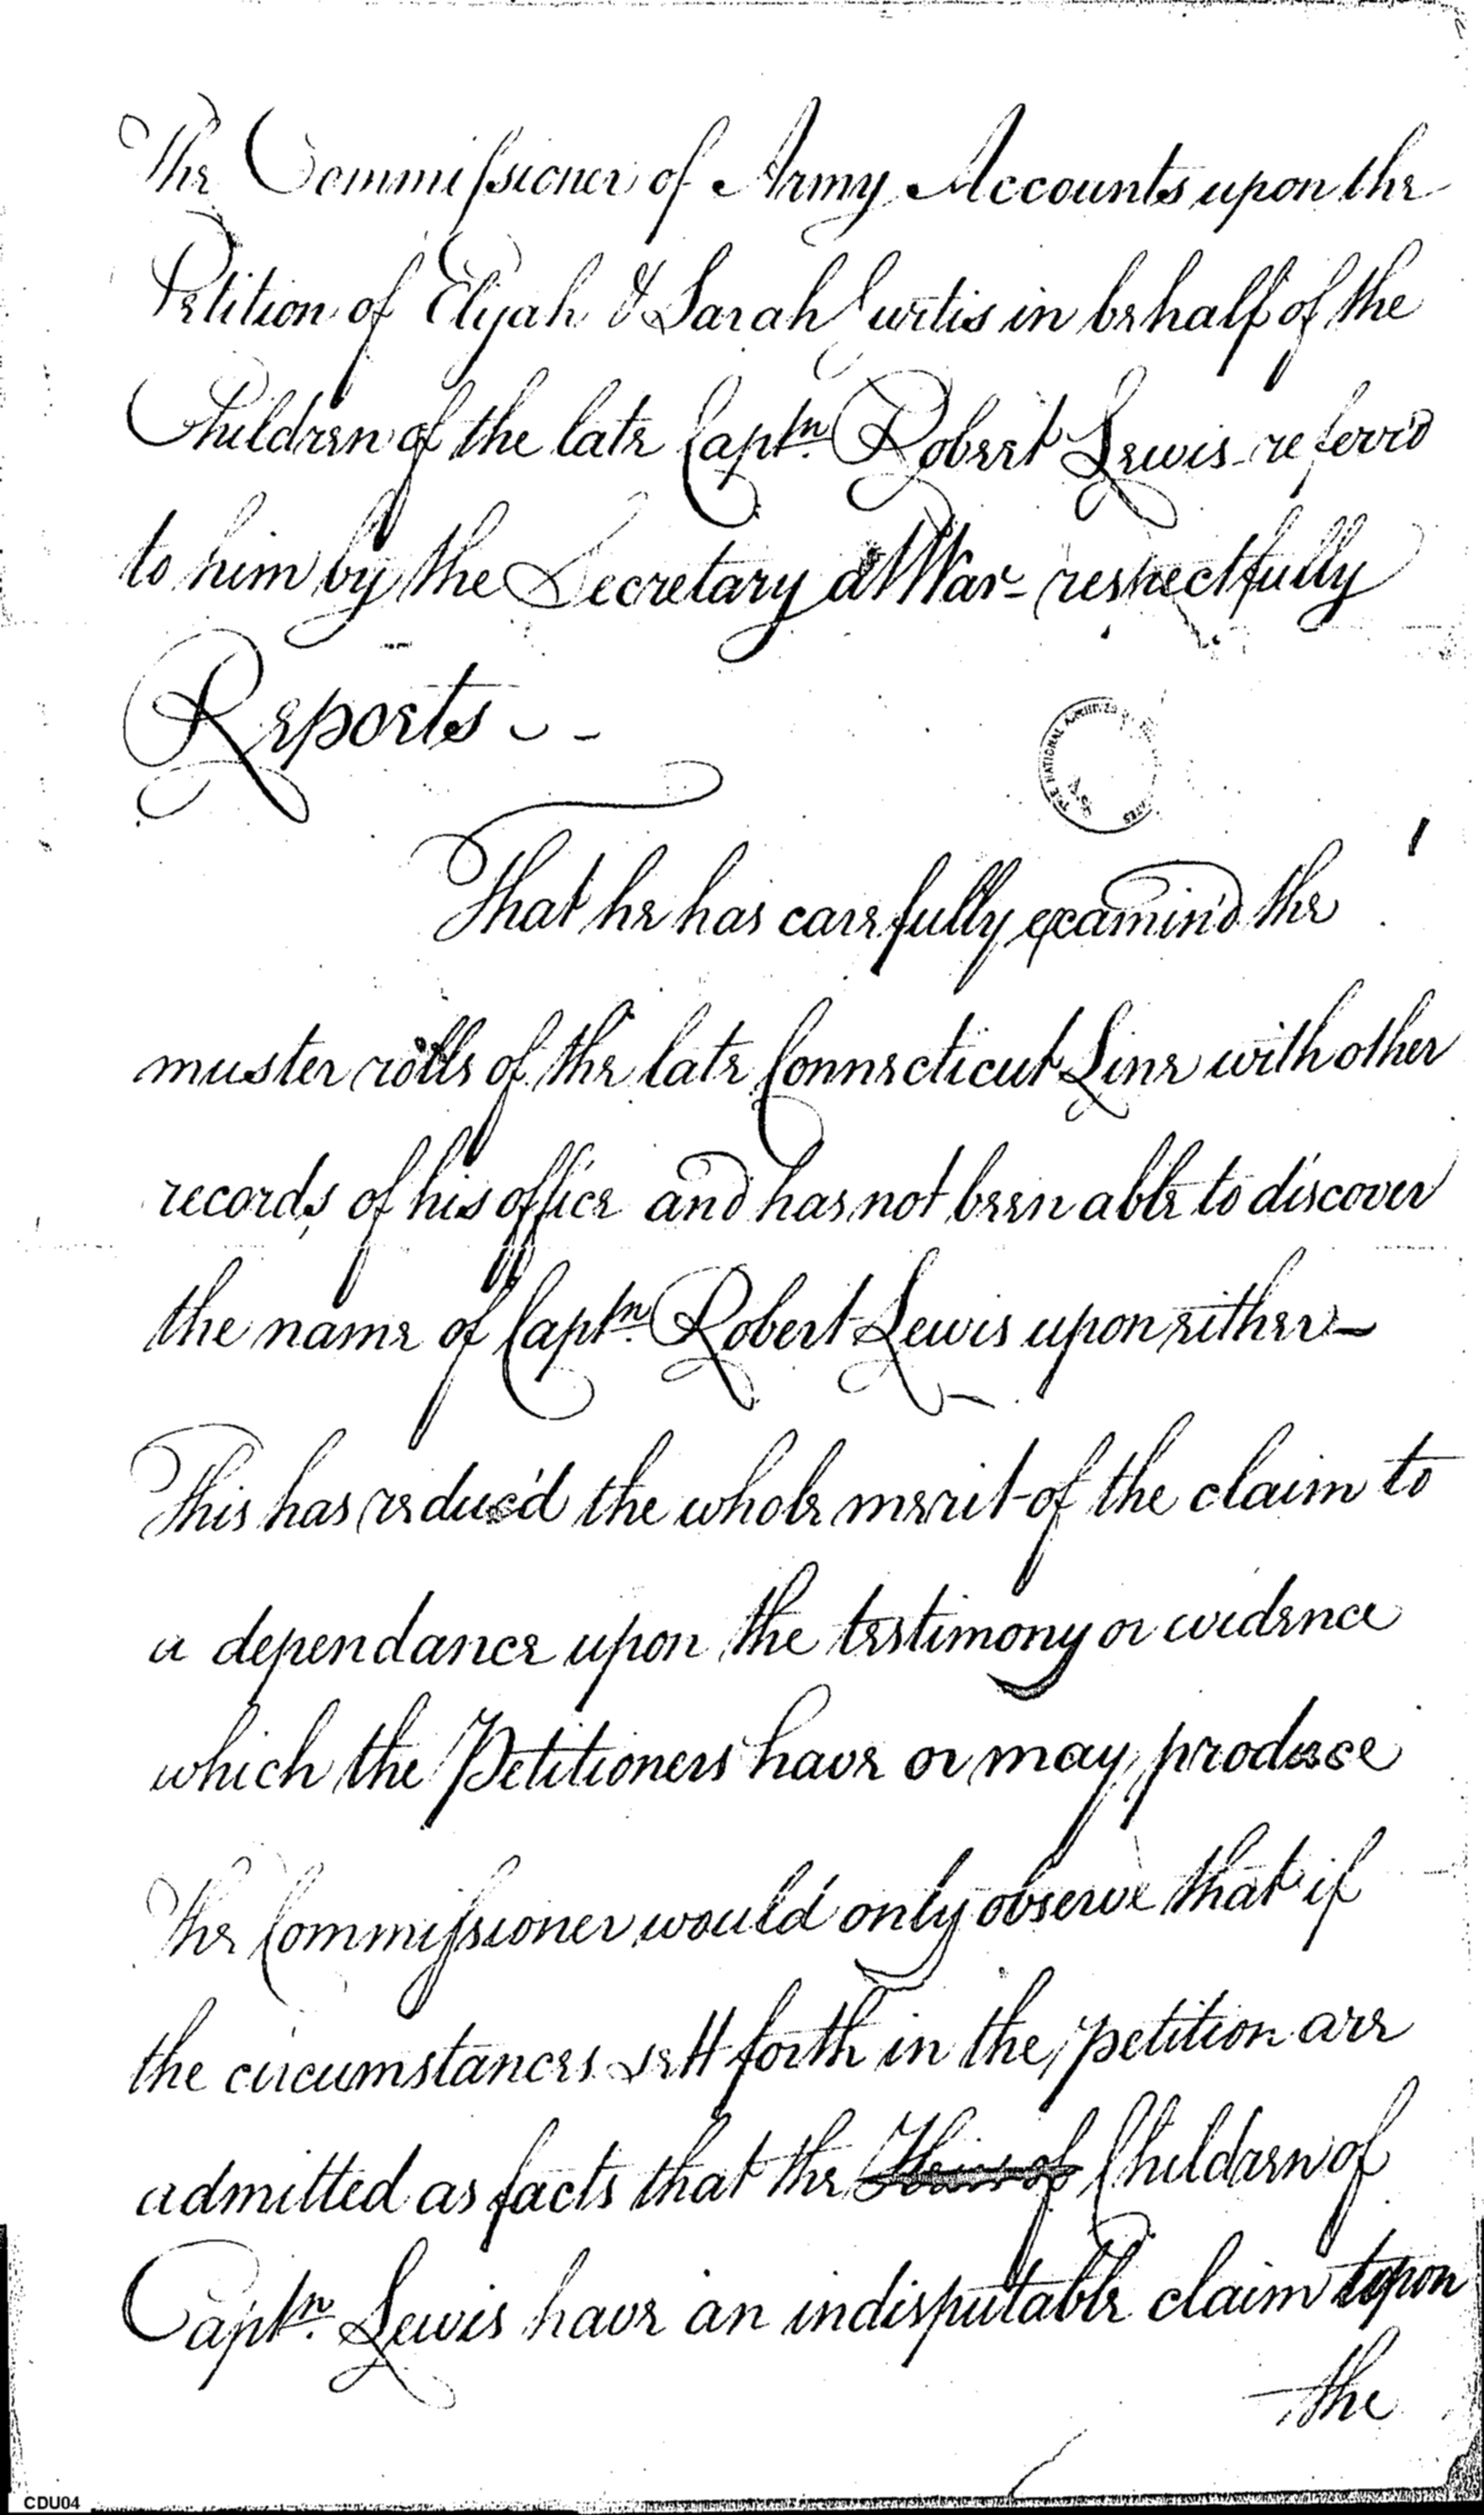 The Commissioner of Army Accounts upon the
Petition of Elijah & Sarah Curtis in behalf of the
Children of the late Captn. Robert Lewis referr'd
to him by the Secretary at War - respectfully
Reports - -
THE NATIONAL ARCHIVES
That he has carefully examin'd the
muster rolls of the late Connecticut Line with other
records of his office and has not been able to discover
the name of Captn. Robert Lewis upon either -
This has reduc'd the whole merit of the claim to
a dependance upon the testimony or evidence
which the Petitioners have or may produce
The Commissioner would only observe that if
the circumstances sett forth in the petition are
admitted as facts that the Heirs of Children of
Captn. Lewis have an indisputable claim upon
the
CDU04